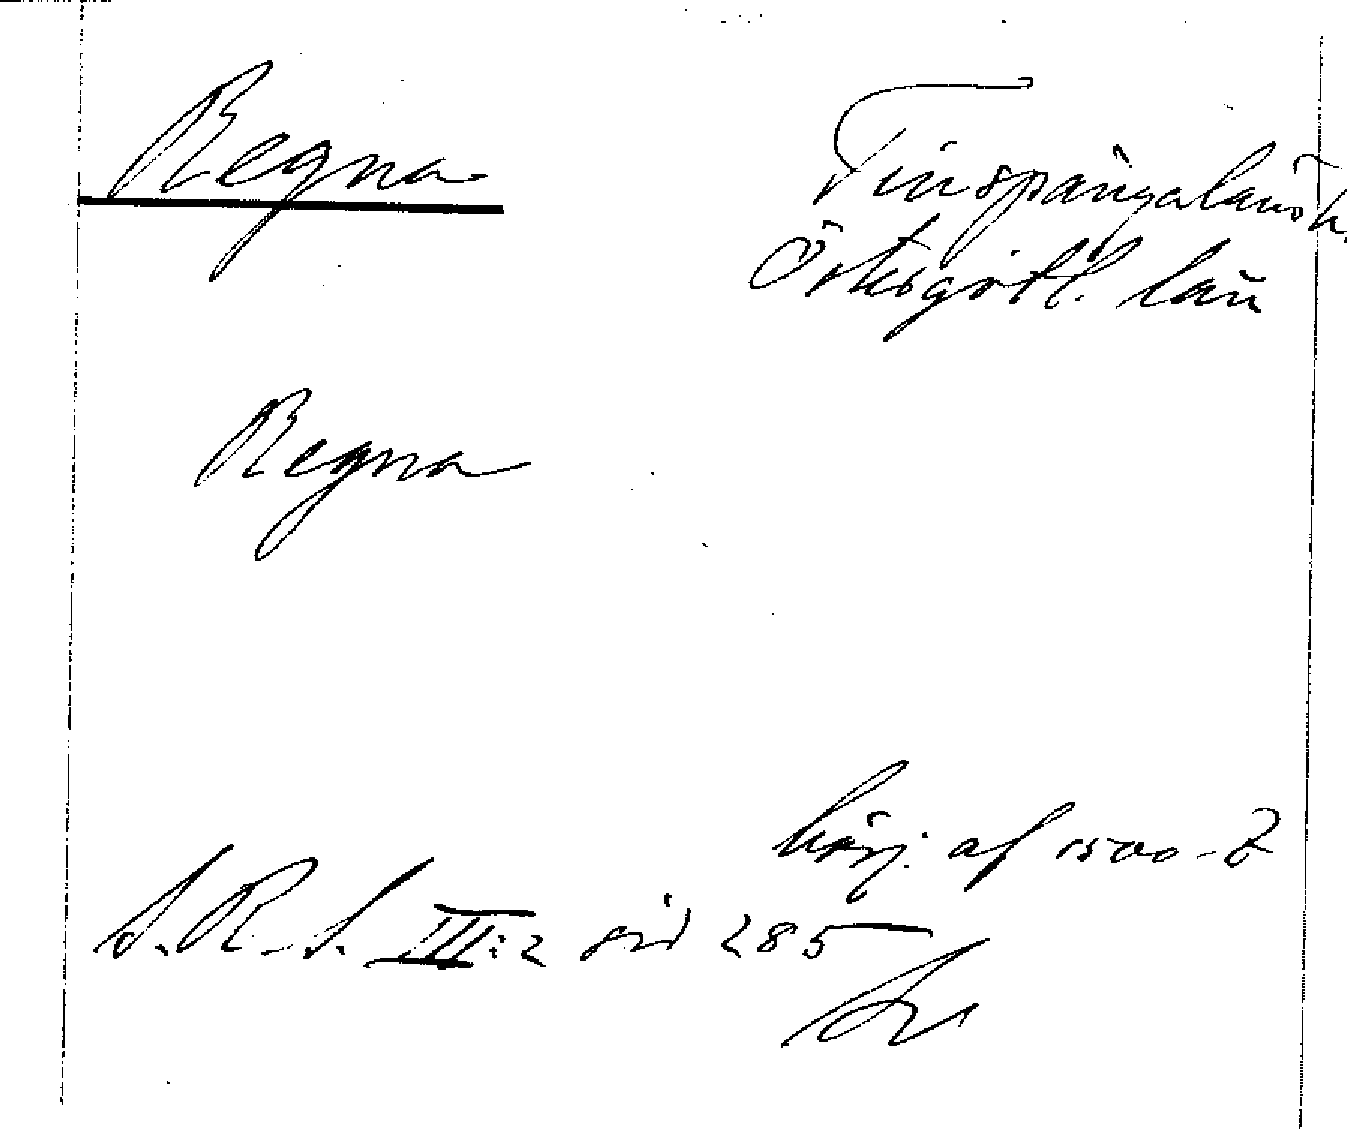 Regna
Finspångaländ h.
Östergötl. län
Regna
börj. af 1500-t
S.R.S. III:2 sid 285